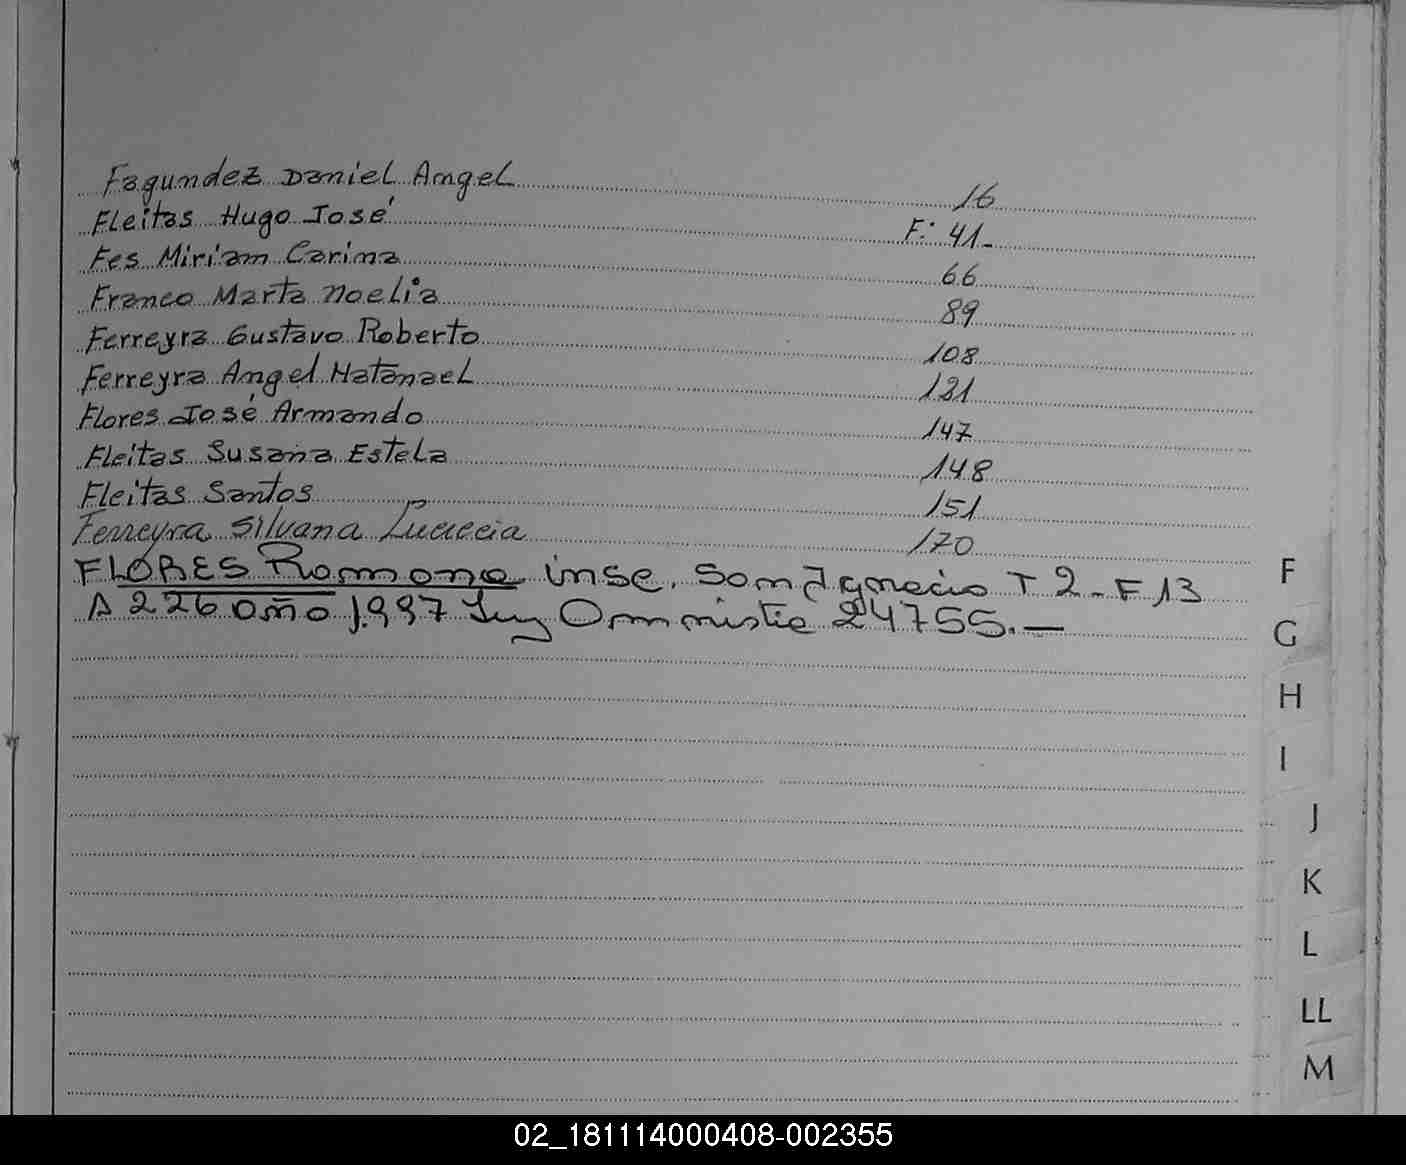 Fagundez Daniel Angel 16
Fleitas Hugo José F: 41-
Fes Miriam Carina 66
Franco Marta Noelia 89
Ferreyra Gustavo Roberto 108
Ferreyra Angel Natanael 121
Flores José Armando 147
Fleitas Susana Estela 148
Fleitas Santos 151
Ferreyra Silvana 170
FLORES Ramona insc. San Ignacio T 2- F 13
A 226 año 1.997 Ley 24755.—
F
G
H
I
J
K
L
LL
M
02_181114000408-002355